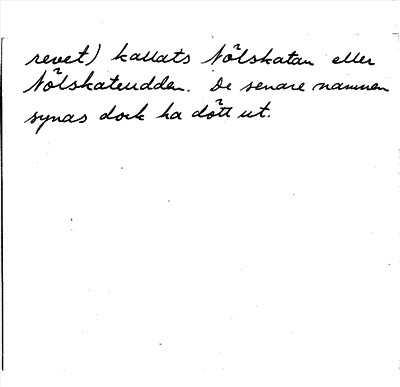 revet) kallats Nölskatan eller
Nölskateudden. De senare namnen
synas dock ha dött ut.